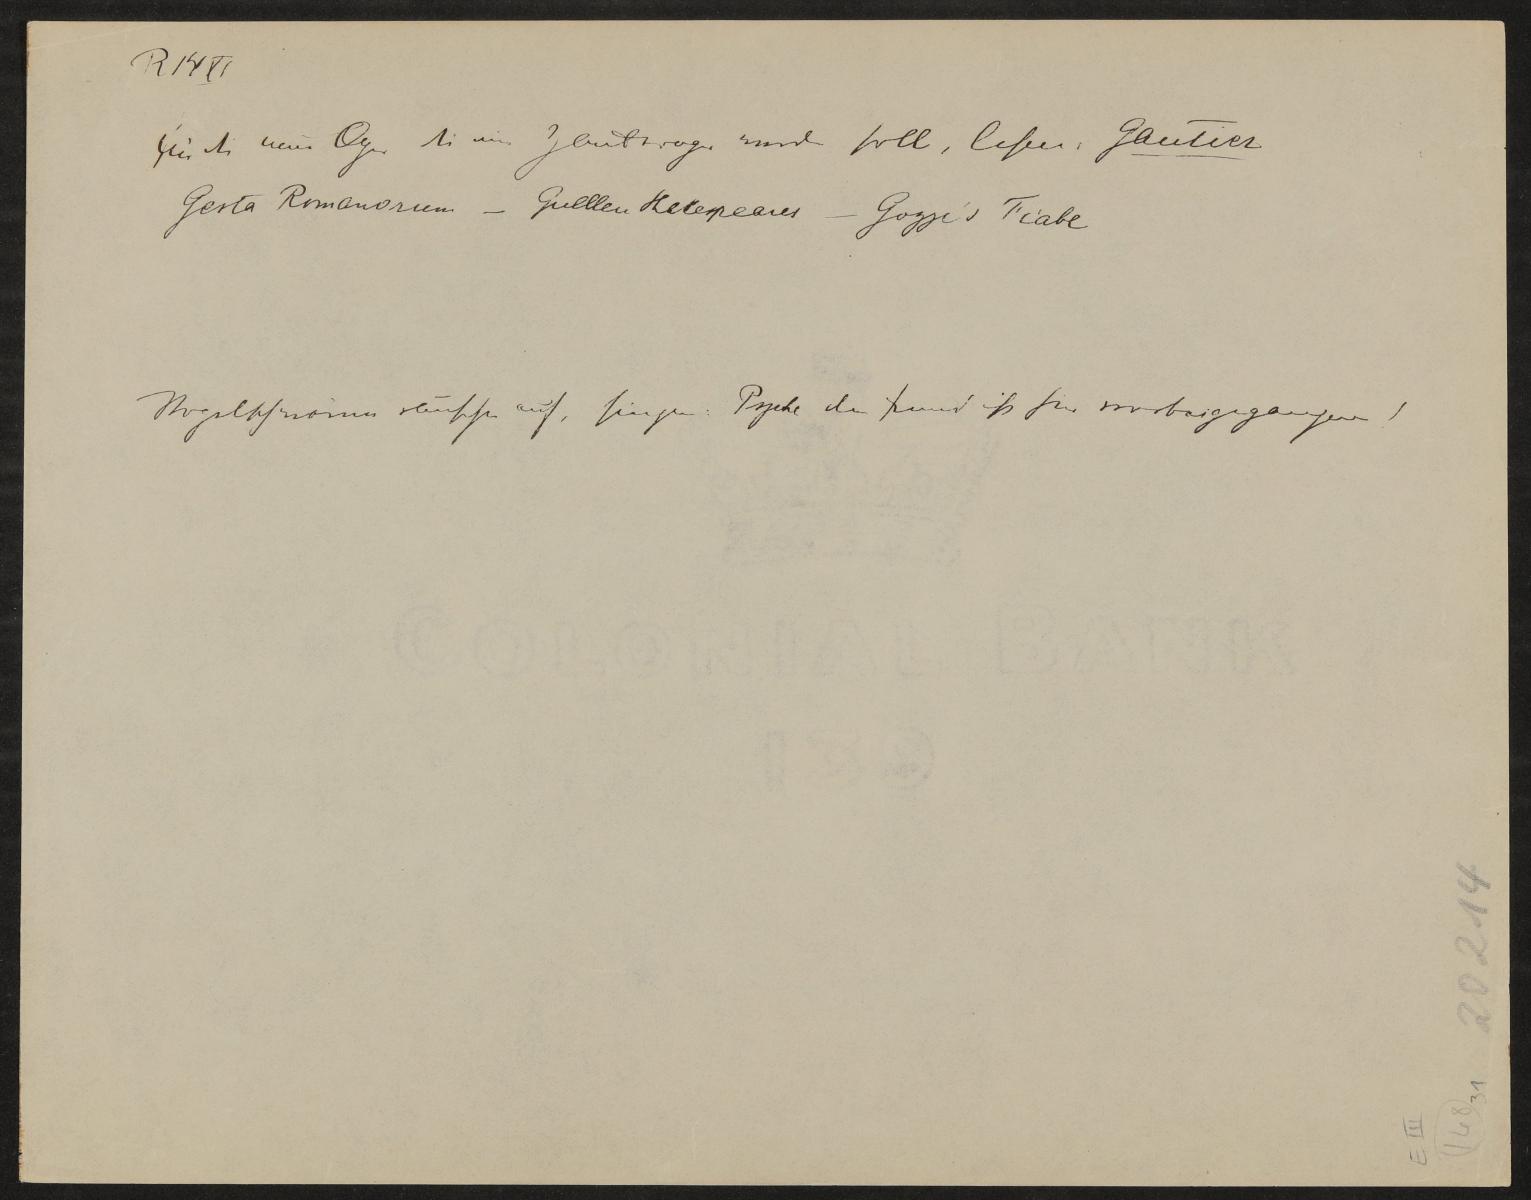 R 14 VI
für die neue Oper die eine          werden soll, lesen: Gautier
Gesta Romanorum – Quellen Shakespeares – Gozzi's Fiabe
Vogelschwärme rauschen auf, singen: Psyche dein Freund ist hier vorbeigegangen!
COLONIAL BANK
20214
148 31
E III